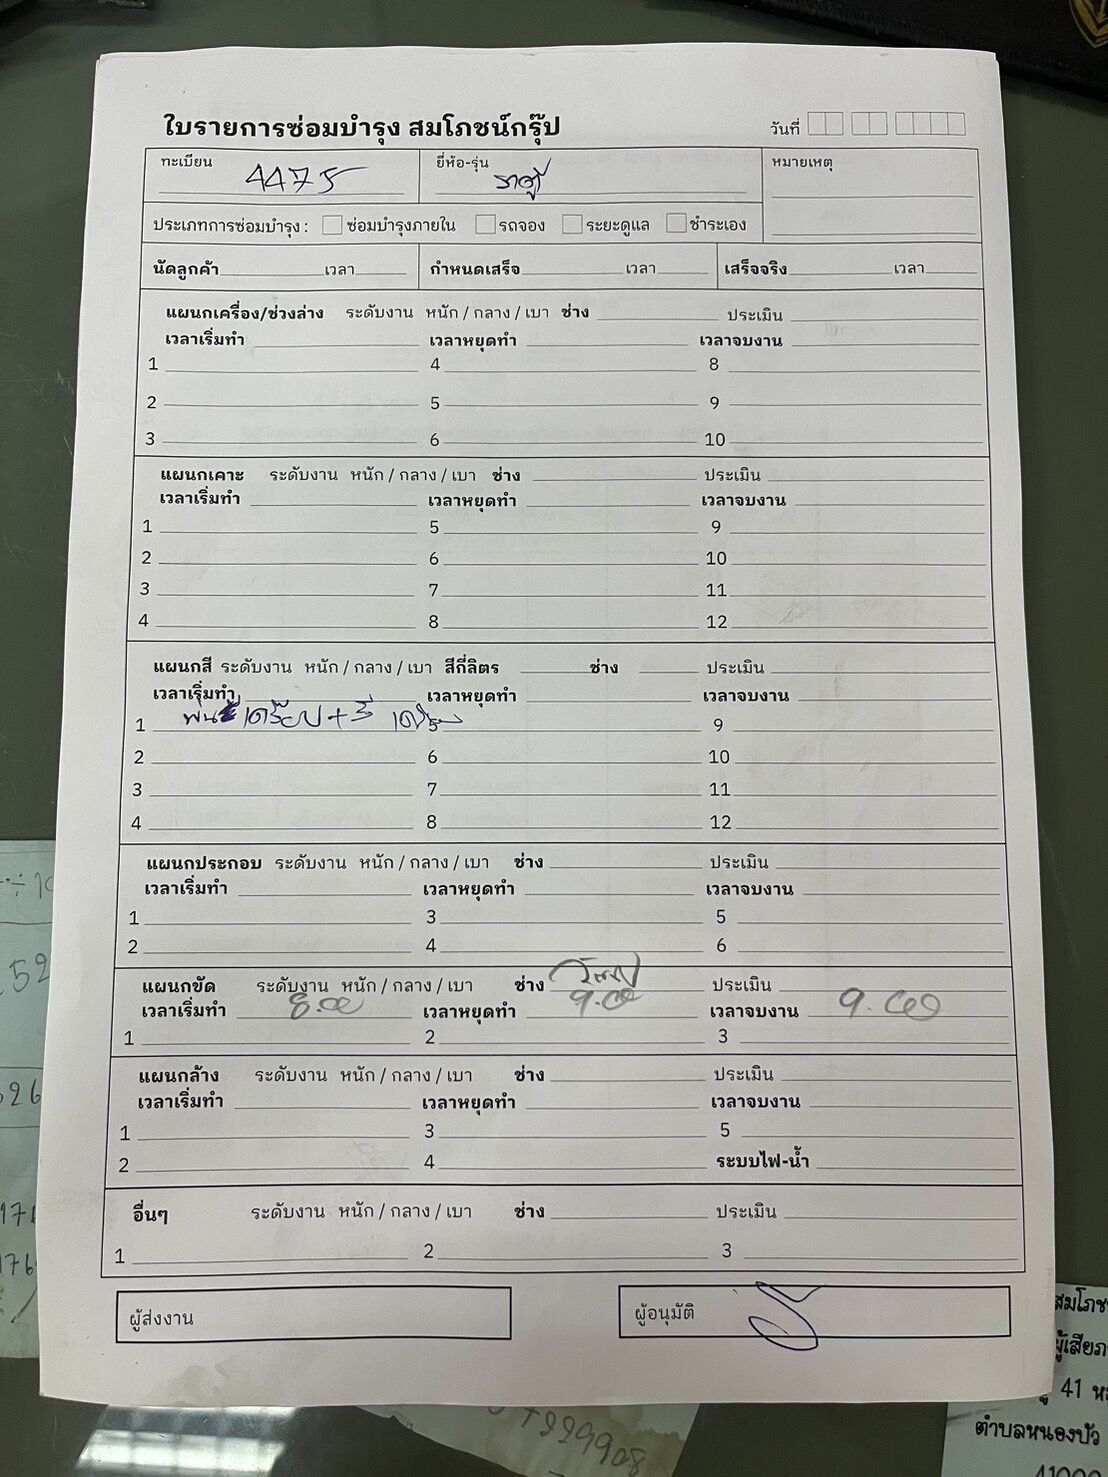 ใบรายการซ่อมบำรุง สมโภชน์กรุ๊ป วันที่
ทะเบียน 4475 ยี่ห้อ-รุ่น หมายเหตุ
ประเภทการซ่อมบำรุง : ซ่อมบำรุงภายใน รถจอง ระยะดูแล ชำระเอง
นัดลูกค้า เวลา กำหนดเสร็จ เวลา เสร็จจริง เวลา
แผนกเครื่อง/ช่วงล่าง ระดับงาน หนัก / กลาง / เบา ช่าง ประเมิน
เวลาเริ่มทำ เวลาหยุดทำ เวลาจบงาน
1 4 8
2 5 9
3 6 10
แผนกเคาะ ระดับงาน หนัก / กลาง / เบา ช่าง ประเมิน
เวลาเริ่มทำ เวลาหยุดทำ เวลาจบงาน
1 5 9
2 6 10
3 7 11
4 8 12
แผนกสี ระดับงาน หนัก / กลาง / เบา สีกี่ลิตร ช่าง ประเมิน
เวลาเริ่มทำ เวลาหยุดทำ เวลาจบงาน
1 พ่น 5 9
2 6 10
3 7 11
4 8 12
แผนกประกอบ ระดับงาน หนัก / กลาง / เบา ช่าง ประเมิน
เวลาเริ่มทำ เวลาหยุดทำ เวลาจบงาน
1 3 5
2 4 6
แผนกขัด ระดับงาน หนัก / กลาง / เบา ช่าง ประเมิน
เวลาเริ่มทำ 8.00 เวลาหยุดทำ 9.00 เวลาจบงาน 9.00
1 2 3
แผนกล้าง ระดับงาน หนัก / กลาง / เบา ช่าง ประเมิน
เวลาเริ่มทำ เวลาหยุดทำ เวลาจบงาน
1 3 5
2 4 ระบบไฟ-น้ำ
อื่นๆ ระดับงาน หนัก / กลาง / เบา ช่าง ประเมิน
1 2 3
ผู้ส่งงาน ผู้อนุมัติ
สมโภช
ผู้เสียภ
41 ห
ตำบลหนองบัว